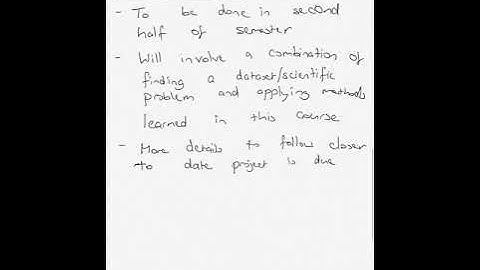 - To be done in second
half of semester
- Will involve a combination of
finding a dataset/scientific
problem and applying methods
learned in this course
- More details to follow closer
to date project is due